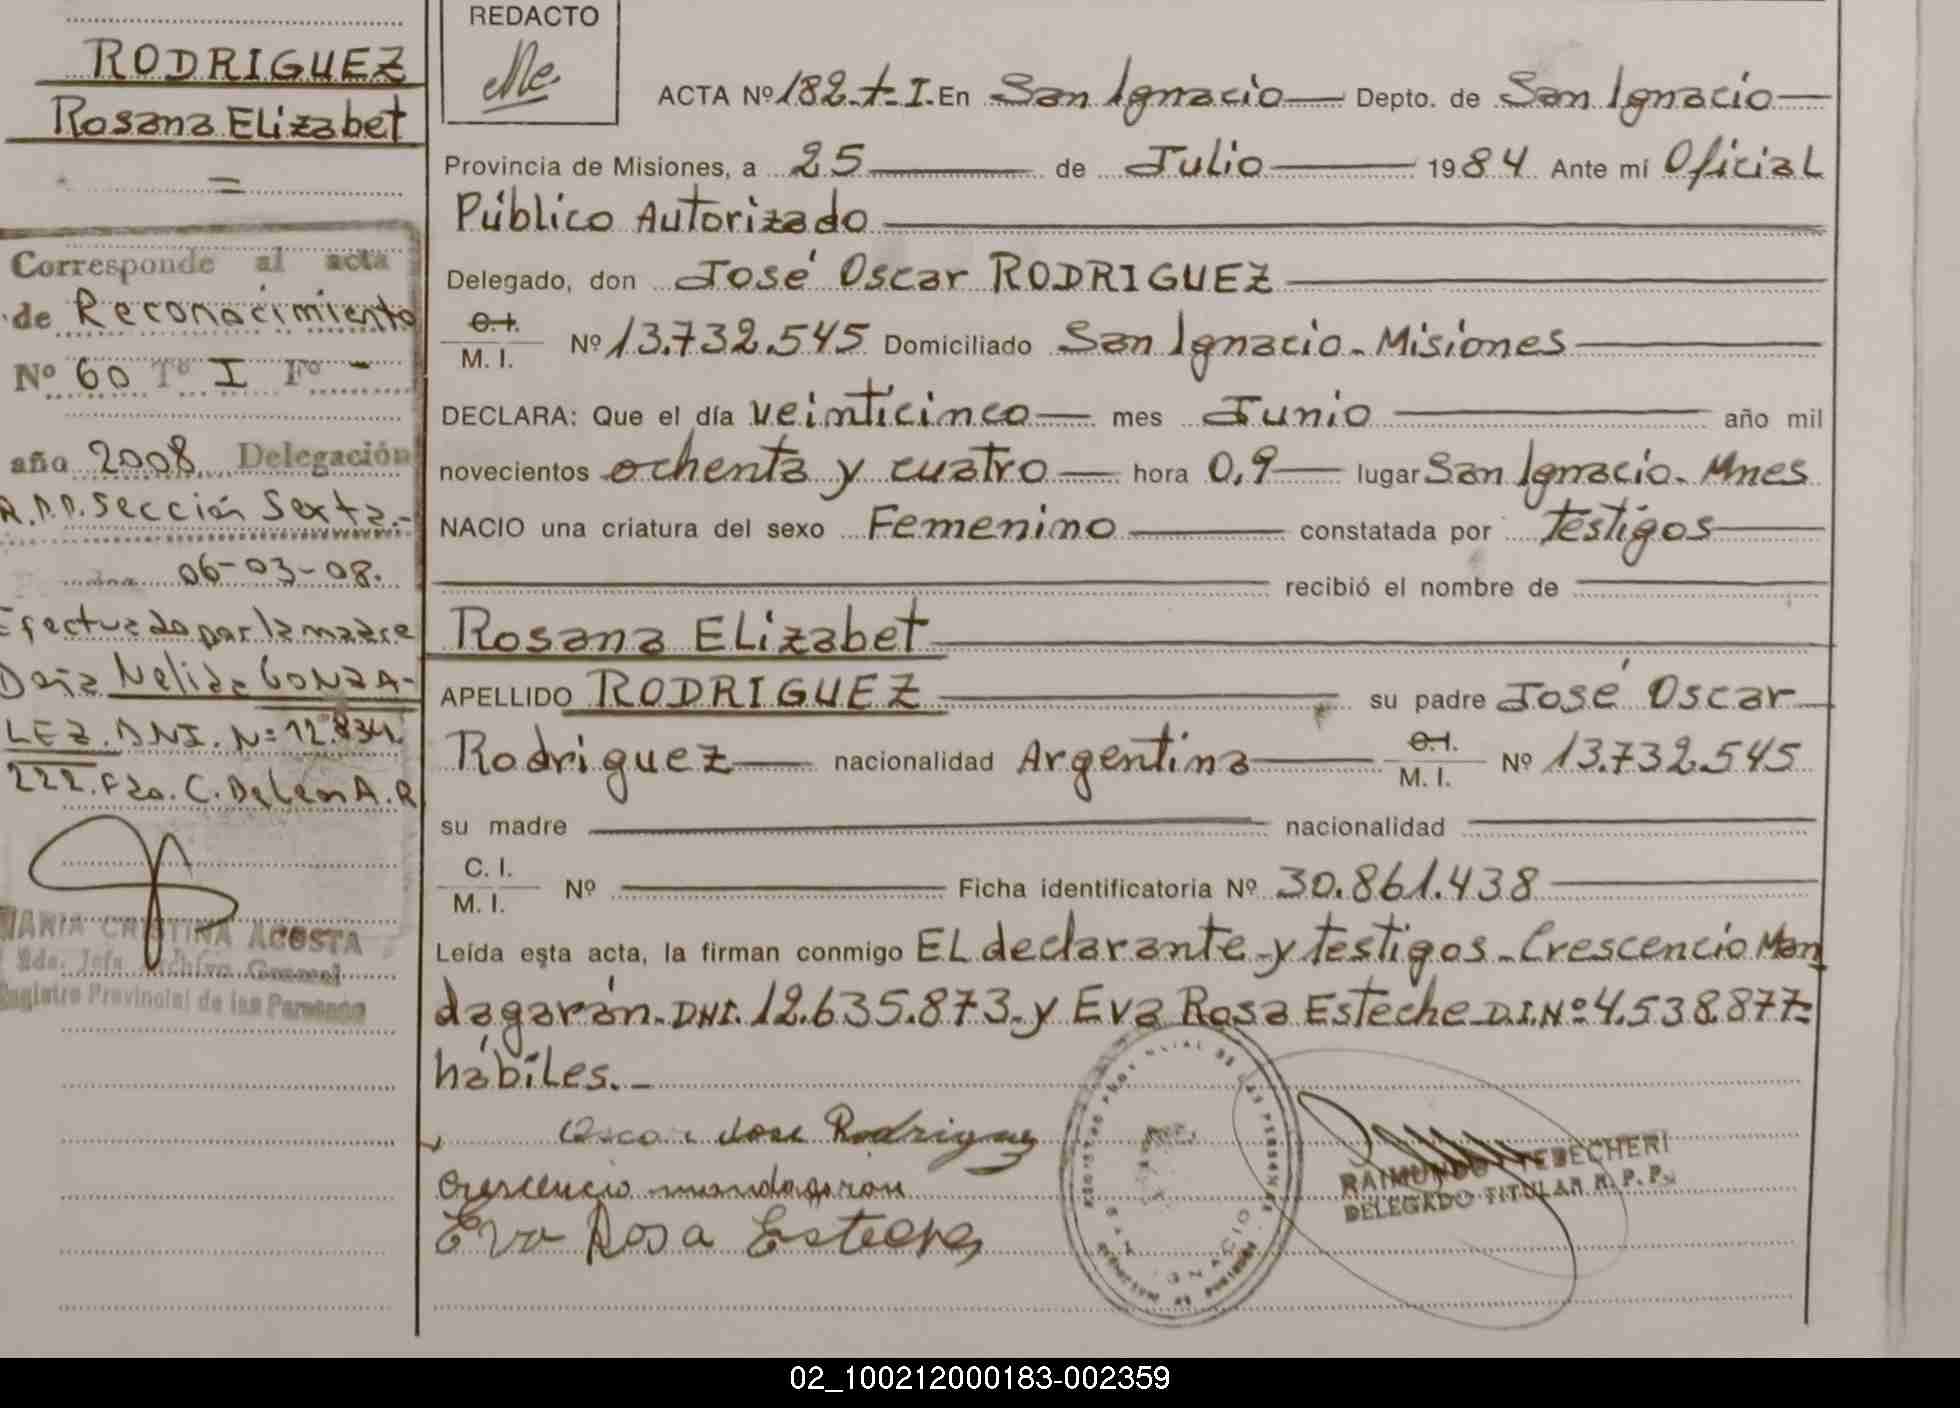 RODRIGUEZ
Rosana ELizabet
=
Corresponde al acta
de Reconocimiento
Nº 60 Tº I Fº -
año 2008 Delegación
R.P.P. Sección Sexta.-
06-03-08.
Efectuado por la madre
Doña Nelida GONZA-
LEZ. DNI. Nº 12.834.
222. Fdo. C. De León A. R
MARIA CRISTINA ACOSTA
2da. Jefa Archivo General
Registro Provincial de las Personas
REDACTO
ACTA Nº 182-t-I. En San Ignacio Depto. de San Ignacio
Provincia de Misiones, a 25 de Julio 1984 Ante mí Oficial
Público Autorizado
Delegado, don José Oscar RODRIGUEZ
C.I.
M. I. Nº 13.732.545 Domiciliado San Ignacio - Misiones
DECLARA: Que el día veinticinco mes Junio año mil
novecientos ochenta y cuatro hora 0,9 lugar San Ignacio - Mnes
NACIO una criatura del sexo Femenino constatada por testigos
recibió el nombre de
Rosana ELizabet
APELLIDO RODRIGUEZ su padre José Oscar
Rodriguez nacionalidad Argentina C.I. M. I. Nº 13.732.545
su madre nacionalidad
C. I.
M. I. Nº Ficha identificatoria Nº 30.861.438
Leída esta acta, la firman conmigo EL declarante y testigos - Crescencio Man
dagarán - DNI. 12.635.873 - y Eva Rosa Esteche D.I.Nº 4.538.877-
hábiles. -
Oscar Jose Rodriguez
Crescencio mandagaran
Eva Rosa Esteche
REGISTRO PROVINCIAL DE LAS PERSONAS
SAN IGNACIO
RAIMUNDO TEBECHERI
DELEGADO TITULAR R. P. P.
02_100212000183-002359